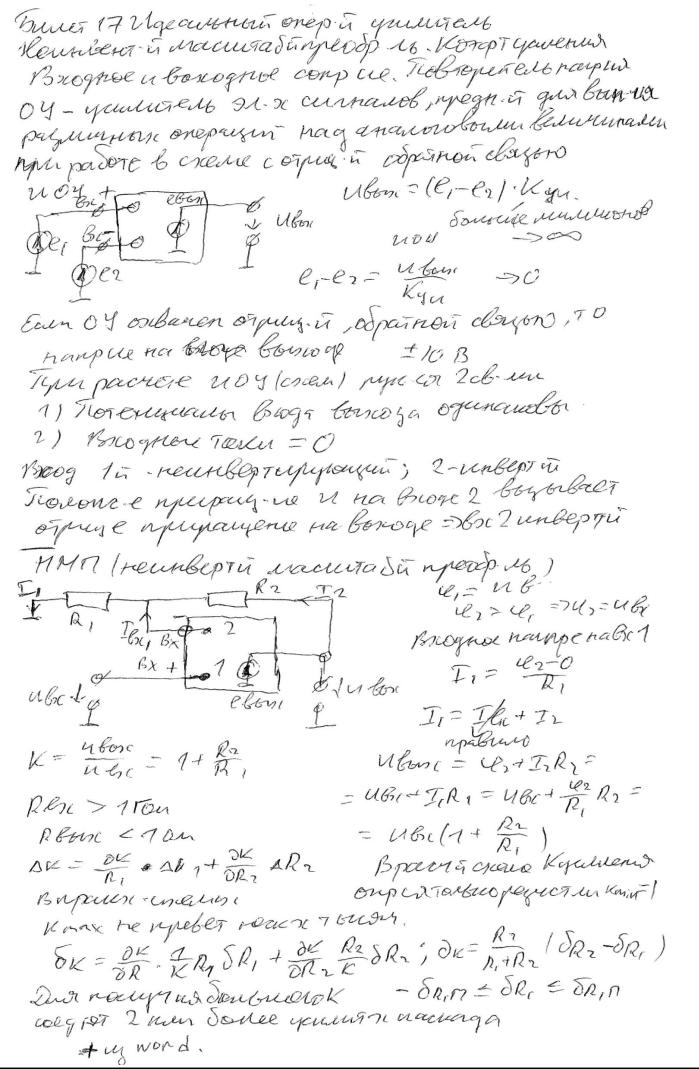 Билет 17 Идеальный опер-й усилитель
Неинвент-й масштаб й преобр-ль. Коэфт усиления
Входное и выходное сопр-ие. Повторитель напр-ия
ОУ – усилитель эл-х сигналов, предн-й для вып-ия
различных операций над аналоговыми величинами
при работе в схеме с отриц-й обратной связью
ИОУ
вх +
eвых
Uвых = (e₁-e₂)·Kус.
e₁
вх-
Uвых
больше миллионов
ИОУ → ∞
e₂
e₁-e₂ = Uвых/Kус → 0
Если ОУ охвачен отриц-й, обратной связью, то
напр-ие на выходе ±10 В
При расчете ИОУ (схем) 2 св-ми
1) Потенциалы входа выхода одинаковы
2) Входные токи = 0
Вход 1й - неинвертирующий; 2-инверт й
Полож-е приращ-ие U на входе 2 вызывает
отриц-е приращение на выходе ⇒ вх 2 инверт й
НМП (неинверт й масштаб й преобр-ль)
I₁ R₁ R₂ I₂
φ₁ = Uв
φ₂ = φ₁ ⇒ φ₂ = Uвх
Iвх₁ Вх 2
Входное напр-е на вх 1
Вх + 1
I₁ = (φ₂-0)/R₁
Uвх eвых Uвых
I₁ = Iвх + I₂
правило
K = Uвых/Uвх = 1 + R₂/R₁
Uвых = φ₂ + I₂R₂ =
= Uвх + I₁R₁ = Uвх + φ₂/R₁ R₂ =
Rвх > 1 Гом
Rвых < 1 Ом
= Uвх (1 + R₂/R₁)
ΔK = ∂K/R₁ · ΔR₁ + ∂K/∂R₂ ΔR₂
В схема K усиления
В практ-схемах
Kmax не прев-ет тысяч.
δK = ∂K/∂R · 1/K R₁ δR₁ + ∂K/∂R₂ R₂/K δR₂ ; ∂K = R₂/(R₁+R₂) (δR₂ - δR₁)
Для получ-ия больших K
- δR₁П ≤ δR₁ ≤ δR₁П
соед-ют 2 или более усилит-х каскада
+ из word.